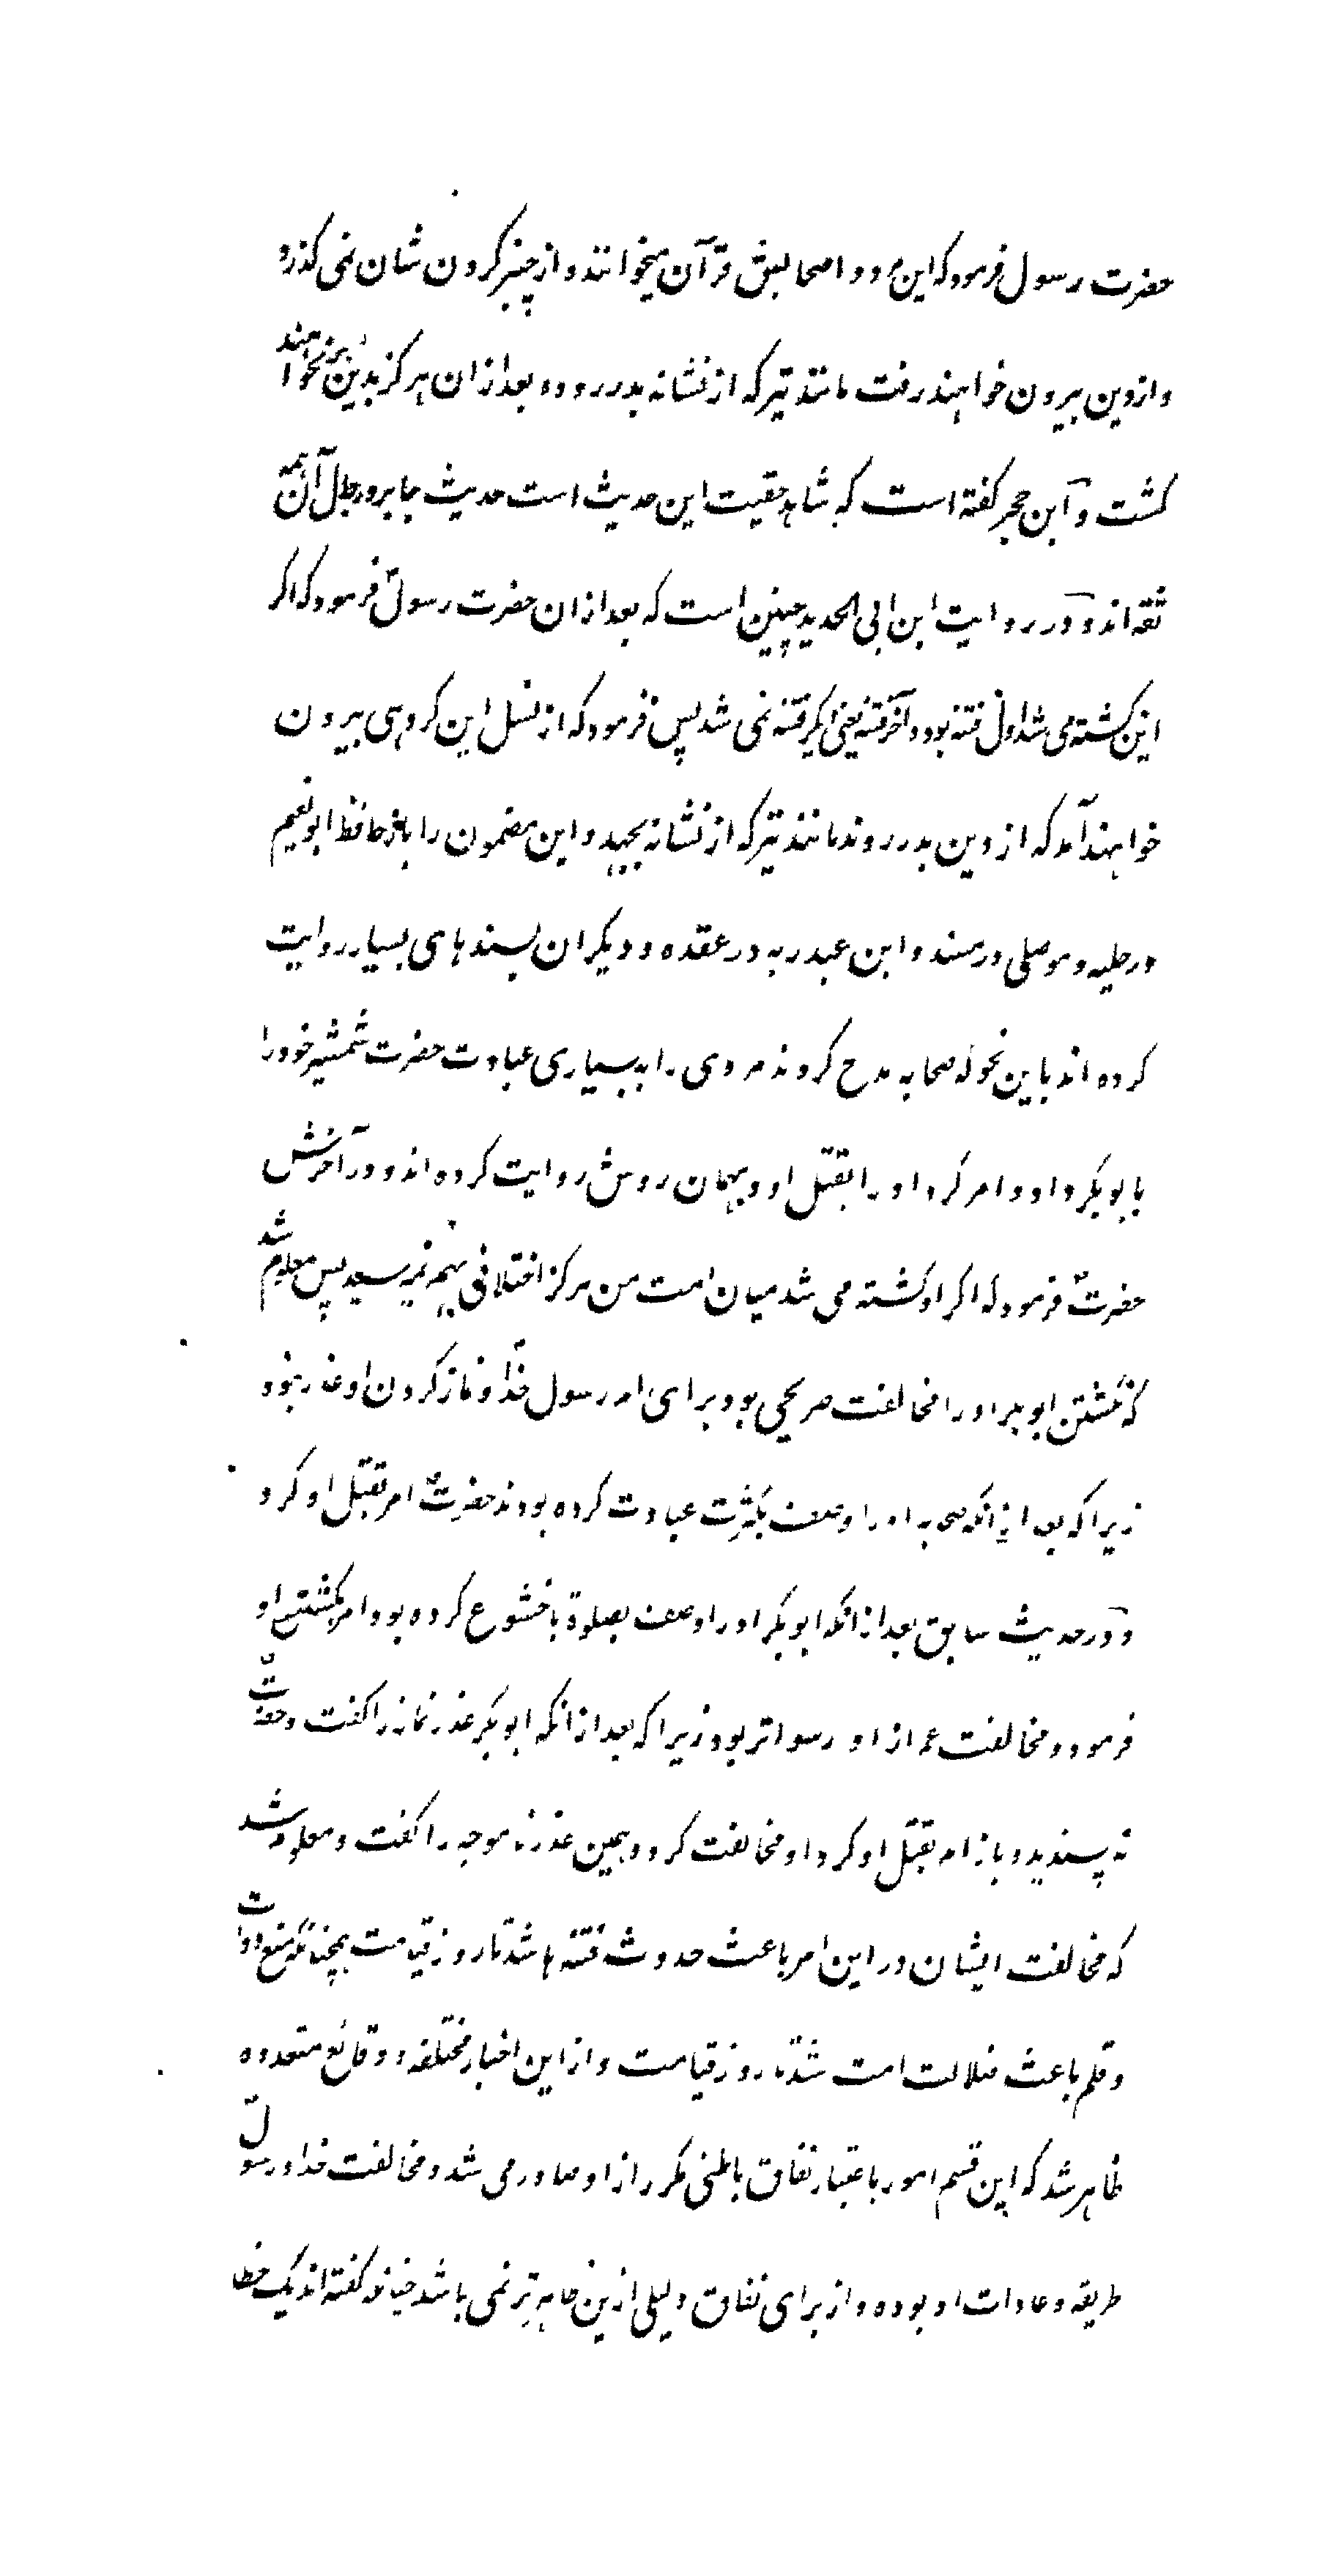 حضرت رسول فرمود که این مرد و اصحابش قرآن میخوانند و از چنبر کردن شان نمی کذرد
و از دین بیرون خواهند رفت مانند تیر که از نشانه بدر رود و بعد از ان هرکز بدین بر نخواهند
کشت و ابن حجر کفته است که شاهد حقیت این حدیث است حدیث جابر و رجال آن همه
ثقه اند و در روایت ابن ابی الحدید چنین است که بعد از ان حضرت رسول فرمود که اکر
این کشته می شد اول فتنه بود و آخر فتنه یعنی دیکر فتنه نمی شد پس فرمود که از نسل این کروهی بیرون
خواهند آمد که از دین بدر روند مانند تیر که از نشانه بجهد و این مضمون را باز حافظ ابو نعیم
در حلیه و موصلی در مسند و ابن عبد ربه در عقده و دیکران بسندهای بسیار روایت
کرده اند باین نحو که صحابه مدح کردند مردی را به بسیاری عبادت حضرت شمشیر خود را
بابو بکر داد و امر کرد او را بقتل او و بهمان روش روایت کرده اند و در آخرش
حضرت فرمود که اکر او کشته می شد میان امت من هرکز اختلافی بهم نمیرسید پس معلوم شد
که نکشتن ابو بکر او را مخالفت صریحی بود برای امر رسول خدا و نماز کردن او عذر نبود
زیرا که بعد از انکه صحابه او را وصف بکثرت عبادت کرده بودند حضرت امر بقتل او کرد
و در حدیث سابق بعد از انکه ابو بکر او را وصف بصلوة با خشوع کرده بود امر بکشتن او
فرمود و مخالفت عمر از او رسواتر بود زیرا که بعد از انکه ابو بکر عذر نماز را کفت و حضرت
نه پسندید و باز امر بقتل او کرد او مخالفت کرد و همین عذر نا موجه را کفت و معلوم شد
که مخالفت ایشان در این امر باعث حدوث فتنه ها شد تا روز قیامت همچنانکه منع دوات
و قلم باعث ضلالت امت شد تا روز قیامت و از این اخبار مختلفه و وقائع متعدده
ظاهر شد که این قسم امور باعتبار نفاق باطنی مکرر از او صادر می شد و مخالفت خدا و رسول
طریقه و عادات او بوده و از برای نفاق دلیلی ازین ظاهر تر نمی باشد چنانچه کفته اند یک خطا